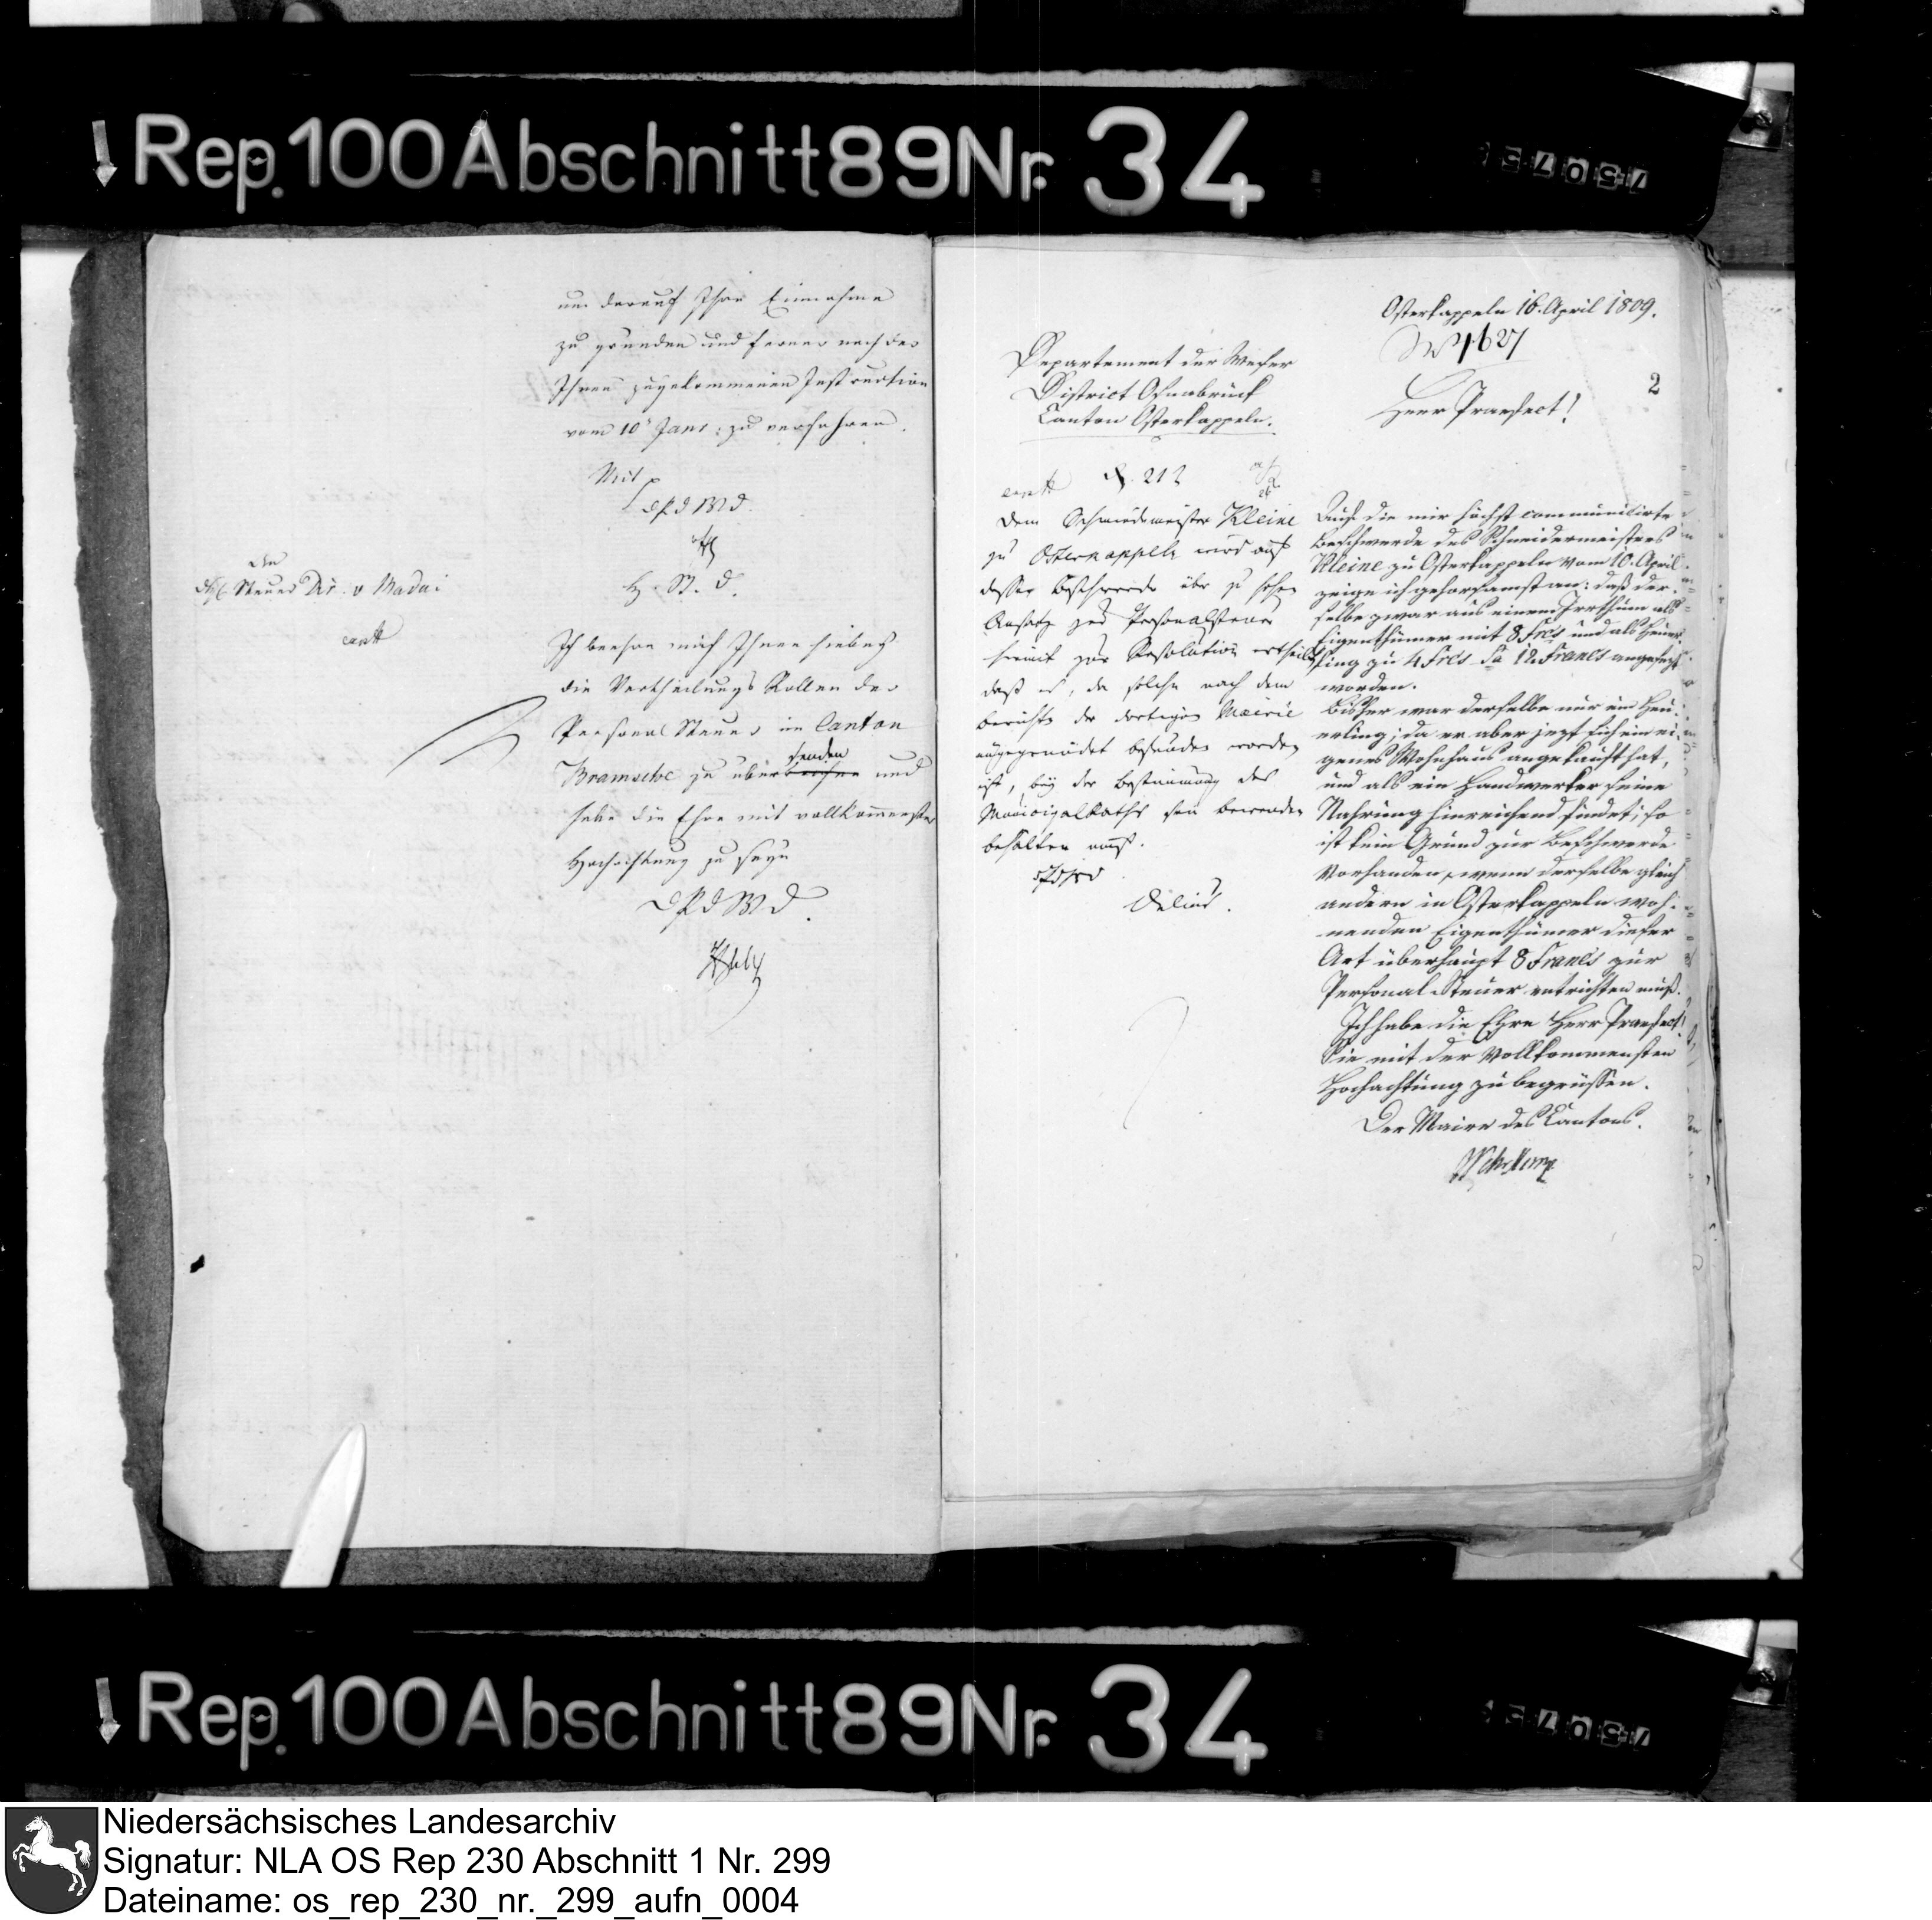 Rep. 100 Abschnitt 89 Nr. 34
um darauf Ihre Einnahme
zu gründen und ferner nach der
Ihnen zugekommenen Instruction
vom 10 Janr: zu verfahren.
Mit
DPdWD.
An
Steuer Dir. v Madai
H. St. D.
Ich beehre mich Ihnen hiebey
die Vertheilungs Rollen der
Personal Steuer im Canton
senden
Bramsche zu über und
habe die Ehre mit vollkommenster
Hochachtung zu seyn
DPdWD.
Osterkappeln 16. April 1809.
No 1627
2
Departement der Weser
District Osnabrück
Canton Osterkappeln.
Herr Praefect!
212
Dem Schneidermeister Kleine
zu Osterkappeln wird auf
dessen Beschwerde über zu hohen
Ansatz zur Personalsteuer
hiemit zur Resolution ertheilt,
daß es, da solche nach dem
Berichte der dortigen Mairie
ungegründet befunden worden
ist, bey der Bestimmung des
Municipalraths sein bewenden
behalten muß.
Delius.
Auf die mir höchst communicirte
Beschwerde des Schneidermeisters
Kleine zu Osterkappeln vom 10. April
zeige ich gehorsamst an: daß der-
selbe zwar aus einem Irrthum als
Eigenthümer mit 8 Frcs und als Heuer-
ling zu 4 Frcs Sa 12 Francs angesezt
worden.
Bisher war derselbe nur ein Heu-
erling; da er aber jezt sich ein ei-
genes Wohnhaus angekauft hat,
und als ein Handwerker seine
Nahrung hinreichend findet; so
ist kein Grund zur Beschwerde
vorhanden, wenn derselbe gleich
andern in Osterkappeln woh-
nenden Eigenthümer dieser
Art überhaupt 8 Francs zur
Personal Steuer entrichten muß.
Ich habe die Ehre Herr Praefect!
Sie mit der vollkommensten
Hochachtung zu begrüssen.
Der Maire des Cantons.
Rep. 100 Abschnitt 89 Nr. 34
Niedersächsisches Landesarchiv
Signatur: NLA OS Rep 230 Abschnitt 1 Nr. 299
Dateiname: os_rep_230_nr._299_aufn_0004